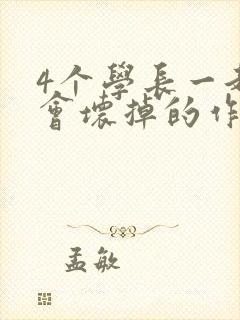 4个學長一
會壞掉的作
孟敏